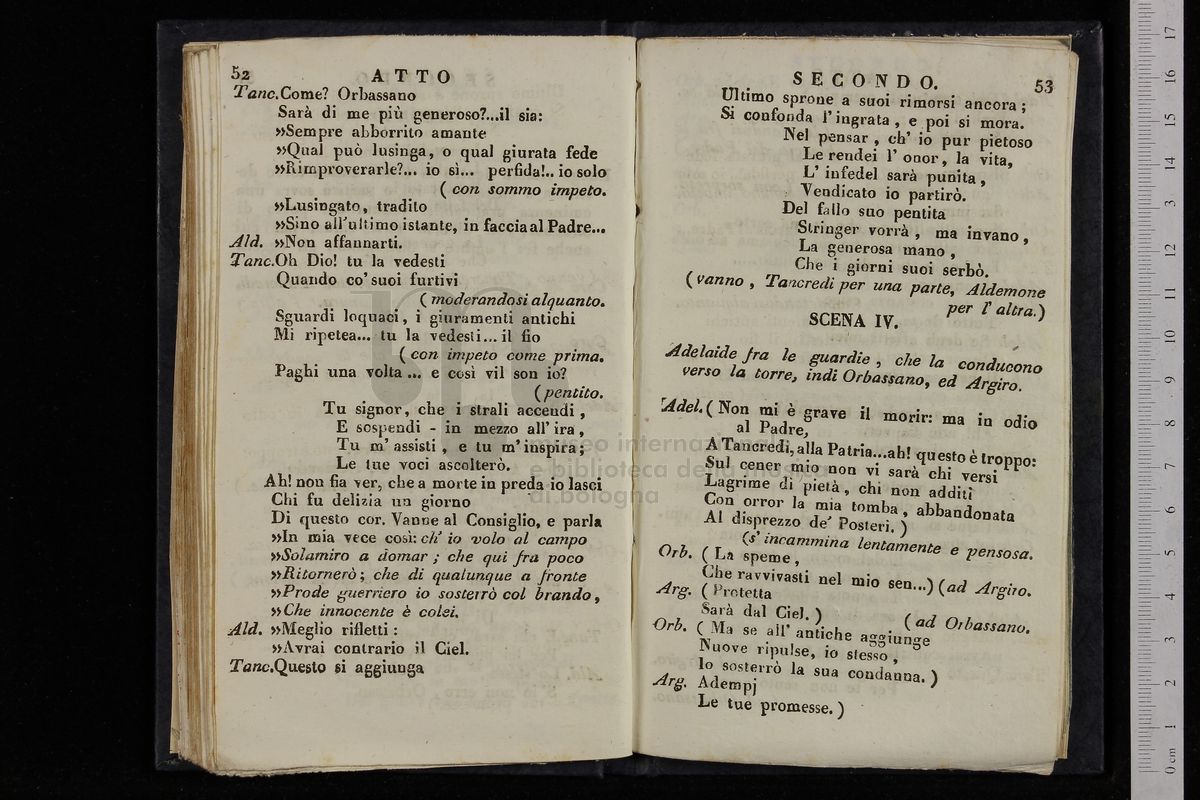 52 ATTO
Tanc.Come? Orbassano
Sarà di me più generoso?...il sia:
»Sempre abborrito amante
»Qual può lusinga, o qual giurata fede
»Rimproverarle?... io sì... perfida!.. io solo
( con sommo impeto.
»Lusingato, tradito
»Sino all'ultimo istante, in faccia al Padre...
Ald. »Non affannarti.
Tanc.Oh Dio! tu la vedesti
Quando co' suoi furtivi
( moderandosi alquanto.
Sguardi loquaci, i giuramenti antichi
Mi ripetea... tu la vedesti... il fio
( con impeto come prima.
Paghi una volta ... e così vil son io?
( pentito.
Tu signor, che i strali accendi ,
E sospendi - in mezzo all' ira ,
Tu m' assisti , e tu m' inspira;
Le tue voci ascolterò.
Ah! non fia ver, che a morte in preda io lasci
Chi fu delizia un giorno
Di questo cor. Vanne al Consiglio, e parla
»In mia vece così: ch' io volo al campo
»Solamiro a domar ; che qui fra poco
»Ritornerò; che di qualunque a fronte
»Prode guerriero io sosterrò col brando,
»Che innocente è colei.
Ald. »Meglio rifletti :
»Avrai contrario il Ciel.
Tanc.Questo si aggiunga
SECONDO. 53
Ultimo sprone a suoi rimorsi ancora ;
Si confonda l' ingrata , e poi si mora.
Nel pensar , ch' io pur pietoso
Le rendei l' onor, la vita,
L' infedel sarà punita ,
Vendicato io partirò.
Del fallo suo pentita
Stringer vorrà , ma invano ,
La generosa mano ,
Che i giorni suoi serbò.
( vanno , Tancredi per una parte, Aldemone
per l' altra.)
SCENA IV.
Adelaide fra le guardie , che la conducono
verso la torre, indi Orbassano, ed Argiro.
Adel. ( Non mi è grave il morir: ma in odio
al Padre,
A Tancredi, alla Patria...ah! questo è troppo:
Sul cener mio non vi sarà chi versi
Lagrime di pietà , chi non additi
Con orror la mia tomba , abbandonata
Al disprezzo de' Posteri. )
(s' incammina lentamente e pensosa.
Orb. ( La speme ,
Che ravvivasti nel mio sen...) (ad Argiro.
Arg. ( Protetta
Sarà dal Ciel. ) ( ad Orbassano.
Orb. ( Ma se all' antiche aggiunge
Nuove ripulse, io stesso ,
Io sosterrò la sua condanna. )
Arg. Adempj
Le tue promesse. )
museo internazionale
e biblioteca della musica
di bologna
0 cm 1 2 3 4 5 6 7 8 9 10 11 12 13 14 15 16 17